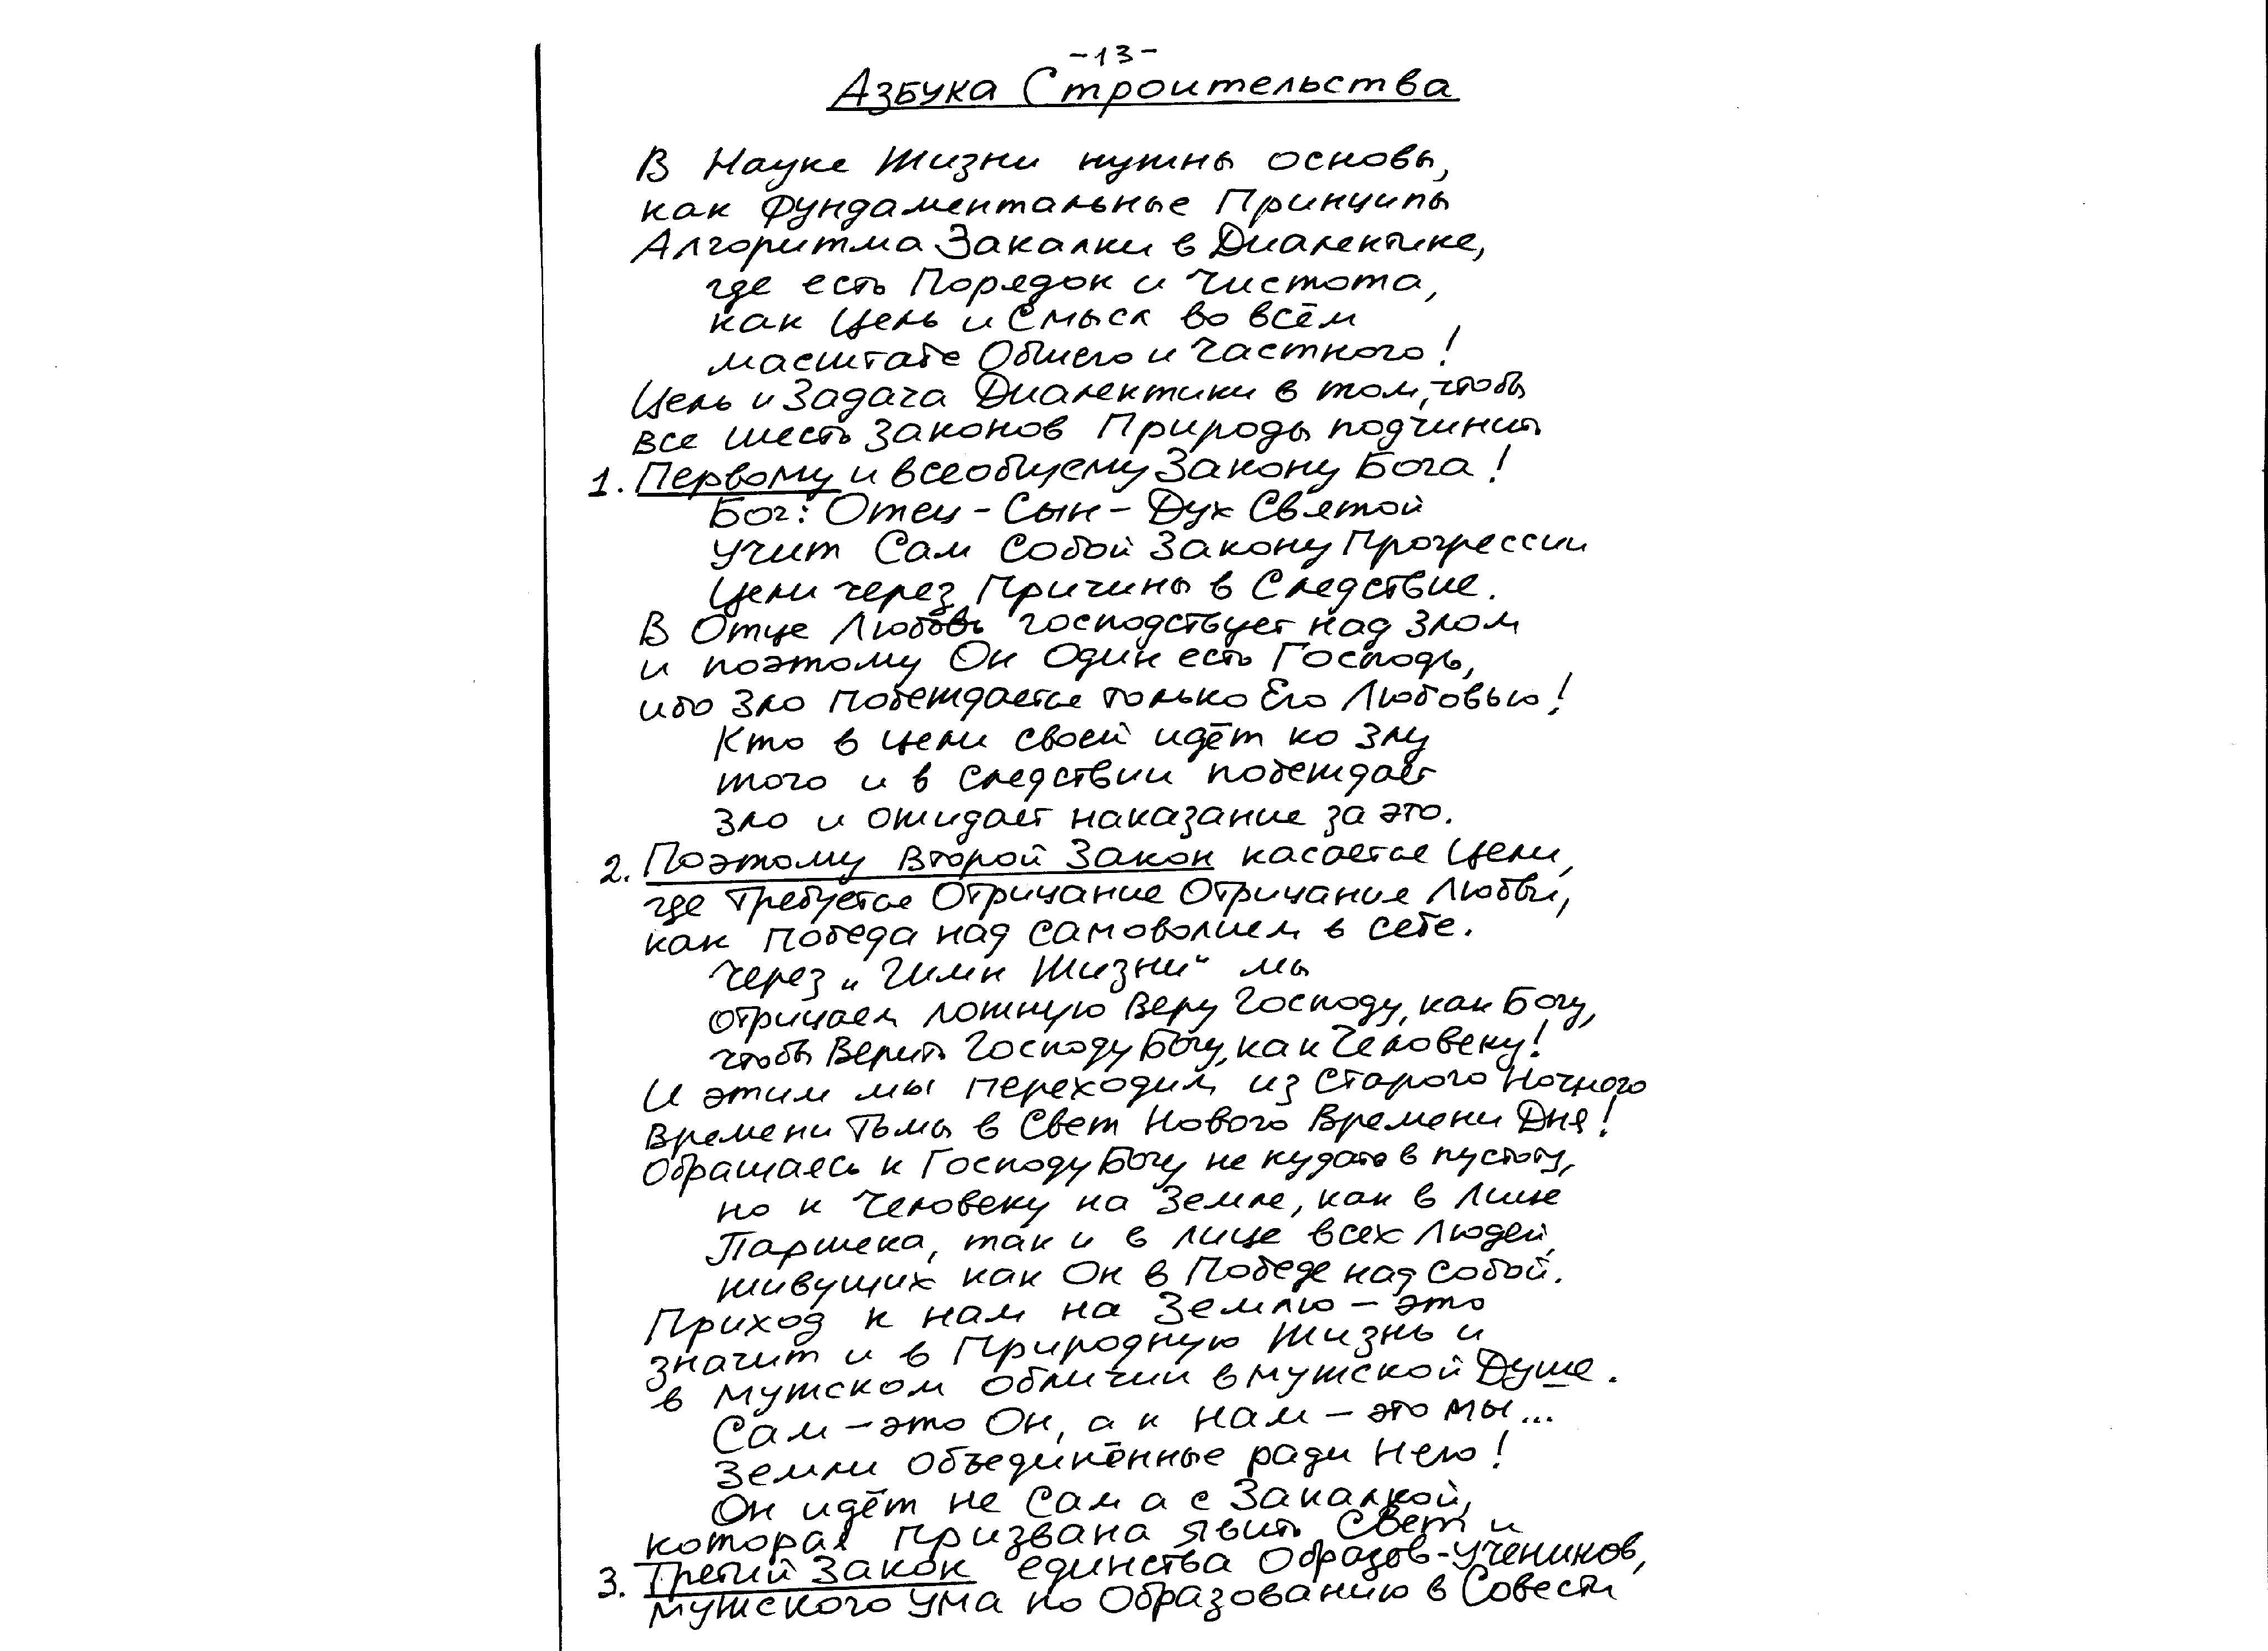 -13-
Азбука Строительства
В Науке Жизни нужны основы,
как Фундаментальные Принципы
Алгоритма Закалки в Диалектике,
где есть Порядок и Чистота,
как Цель и Смысл во всём
масштабе Общего и Частного!
Цель и Задача Диалектики в том, чтобы
все шесть Законов Природы подчинить
1. Первому и всеобщему Закону Бога!
Бог: Отец - Сын - Дух Святой
учит Сам Собой Закону Прогрессии
Цели через Причины в Следствие.
В Отце Любовь господствует над Злом
и поэтому Он Один есть Господь,
ибо Зло побеждается только Его Любовью!
Кто в цели своей идёт ко Злу
того и в следствии побеждает
Зло и ожидает наказание за это.
2. Поэтому Второй Закон касается Цели,
где требуется Отрицание Отрицания Любви,
как победа над самоволием в себе.
Через „Гимн Жизни" мы
отрицаем ложную Веру Господу, как Богу,
чтобы Верить Господу Богу, как Человеку!
И этим мы переходим из Старого Ночного
Времени Тьмы в Свет Нового Времени Дня!
Обращаясь к Господу Богу не кудато в пустоту,
но к Человеку на Земле, как в Лице
Паршека, так и в лице всех Людей,
живущих как Он в Победе над Собой.
Приход к нам на Землю - это
значит и в Природную Жизнь и
в мужском обличии в мужской Душе.
Сам - это Он, а к нам - это мы...
Земли объединённые ради Него!
Он идёт не Сам а с Закалкой,
которая призвана явить Свет и
3. Третий Закон единства Образов-Учеников,
мужского Ума по Образованию в Совести